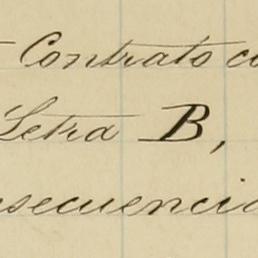 Contrato co
Letra B,
nsecuencia